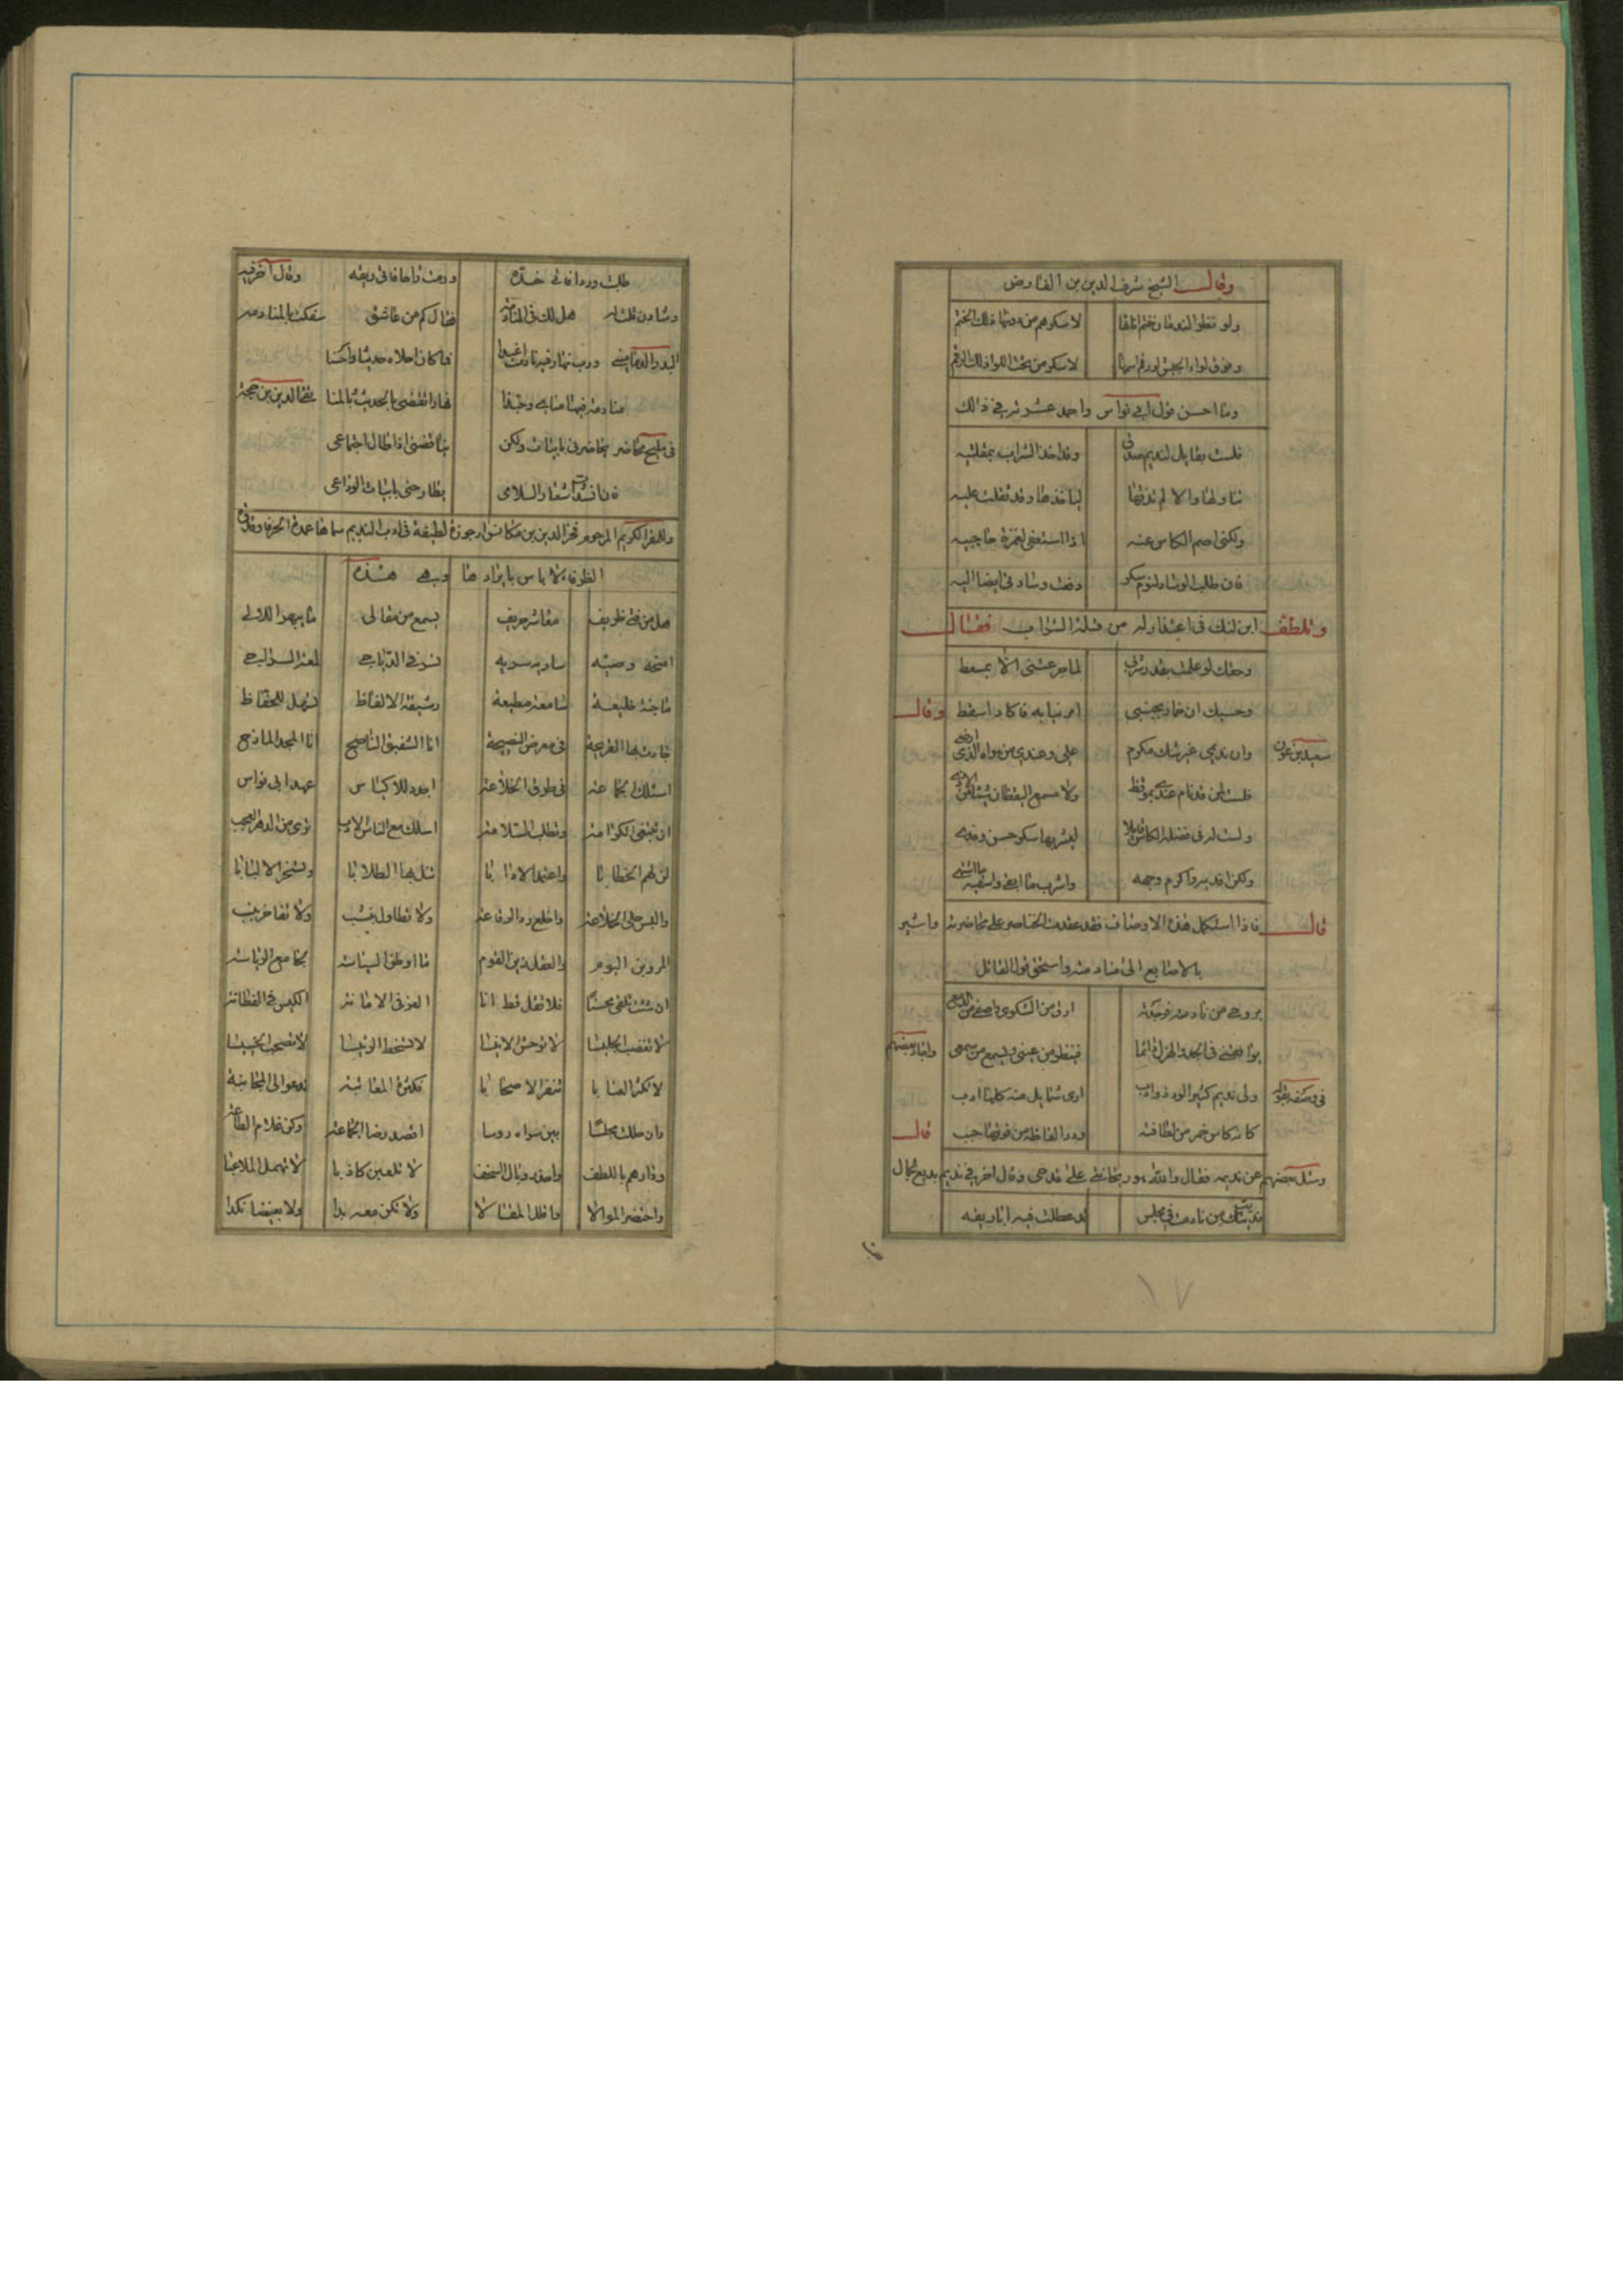 وقال الشيخ شرف الدين بن الفارض
ولو نظروا الندمان ختم انائها لاسكرهم من دونها ذلك الختم
وفوق لواء الجيش لو رقم اسمها لاسكر من تحت اللوا ذلك الرقم
وما احسن قول ابي نواس واحمد عشرته في ذلك
ولست بقايل لنديم صدق وقد اخذ الشراب بمقلتيه
تناولها والا لم اذقها فياخذها وقد ثقلت عليه
ولكني اصم الكاس عنه اذا استعفى لغمزة حاجبيه
فان طلب الوساد لنوم سكر دفعت وسادتي ايضا اليه
وتلطف ابن لنك في اعتذاره من فضلة الشراب فقال
وحقك لو علمت بقدر شربي لما جرعتني الا بمسعط
وحسبك ان خمار بجنبي امر ببابه فاكاد اسقط وقال
سعيد بن عون وان نديمي غير شك مكرم علي وعندي من هواه الذي ارضى
ولست لمن قد نام عندي بموقظ ولا مسمع اليقظان شيئا من الاذى
ولست له في فضلة الكاس قايلا ليشربها سكر
ولكن افديه واكرم وجهه واشرب ما ابقى واسقيه ما اشتهى
قال فاذا استكمل هذه الاوصاف فقد عقدت الخناصر على محاضرته واشير
بالاصابع الى منادمته واستحق قول القائل
بروحي من نادمته فوجدته ارق من الشكوى واصفى من الدمع
يوافقني في الجد والهزل دائما فينظر من عيني ويسمع من سمعي واجاد بعضهم
في وصفه بقوله ولي نديم كثير الود ذو ادب ارى شمايل منه كلها ادب
كانه كاس خمر من لطافته ودر الفاظه من فوقها حبب قال
وسئل بعضهم عن نديمه فقال والله هو ريحانتي على قدحي وقال اخر في نديم بديع الجمال
فديتك من نادمت في مجلس قد عطلت فيه اباريقه
١٧
طلبت وردا فاتى خده ورمت راحا فاتى ريقه وقال اخر فيه
وشادن قلت له هل لك في المنادمة فقال كم من عاشق سفكت بالمنادمة
البدر الدماميني ورب نهار فيه نادمت اغيدا فما كان احلاه حديثا واحسنا
منادمة فيها مناي وحبذا نهارا تقضى بالحديث وبالمنا تقي الدين بن حجة
في مليح محاضر يحاضرني بابيات ولكن يناقضني اذا طال اجتماعي
فان انشدت اشعار السلامي يطارحني بابيات الوداعي
وللمقر الكريم المرحوم فخر الدين بن مكانس ارجوزة لطيفة في ادب النديم سماها عمدة الحرفا وقدوة
الظرفاء لا باس بايرادها وهي هذه
هل من فتى ظريف معاشر حريف يسمع من مقالي ما يبهر اللالي
امنحه وصيه ساريه سريه تنير في الدياجي لمعة السراج
ماجنة خليعة سامعة مطيعة رشيقة الالفاظ تسهل للحفاظ
جادت بها القريحة في معرض النصيحة انا الشفيق الناصح انا المجد المازح
اسلك بالجماعة في طرق الخلاعة اجدد للاكياس عهد ابي نواس
ان تبتغي الكرامة وتطلب السلامة اسلك مع الناس الادب ترى من الدهر العجب
لن لهم الخطابا واعتمد الادابا تنل بها الطلابا وتسحر الالبابا
والبس حلى الخلاعة واخلع رداء الرقاعة ولا تطاول بنشب ولا تفاخر بنسب
المرء ابن اليوم والعقل زين القوم ما اروض السياسة بجامع الرياسة
ان شئت تلقى محسنا فلا تقل قط انا العز في الامانة الكيس في الفطانة
لا تغضب الجليسا لا توحش الانيسا لا تسخط الرئيسا لا تصحب الخسيسا
لا تكثر العتابا تنفر الاصحابا فكثرة المعاتبة تدعو الى المجانبة
وان حللت مجلسا بين سراة روسا اقصد رضا الجماعة وكن غلام الطاعة
ودارهم باللطف واحذر وبال السخف لا تلعبن كاذبا لا تهمل الملاعبا
واختصر السوالا وقلل المقالا ولا تكن معربدا ولا بغيضا نكدا